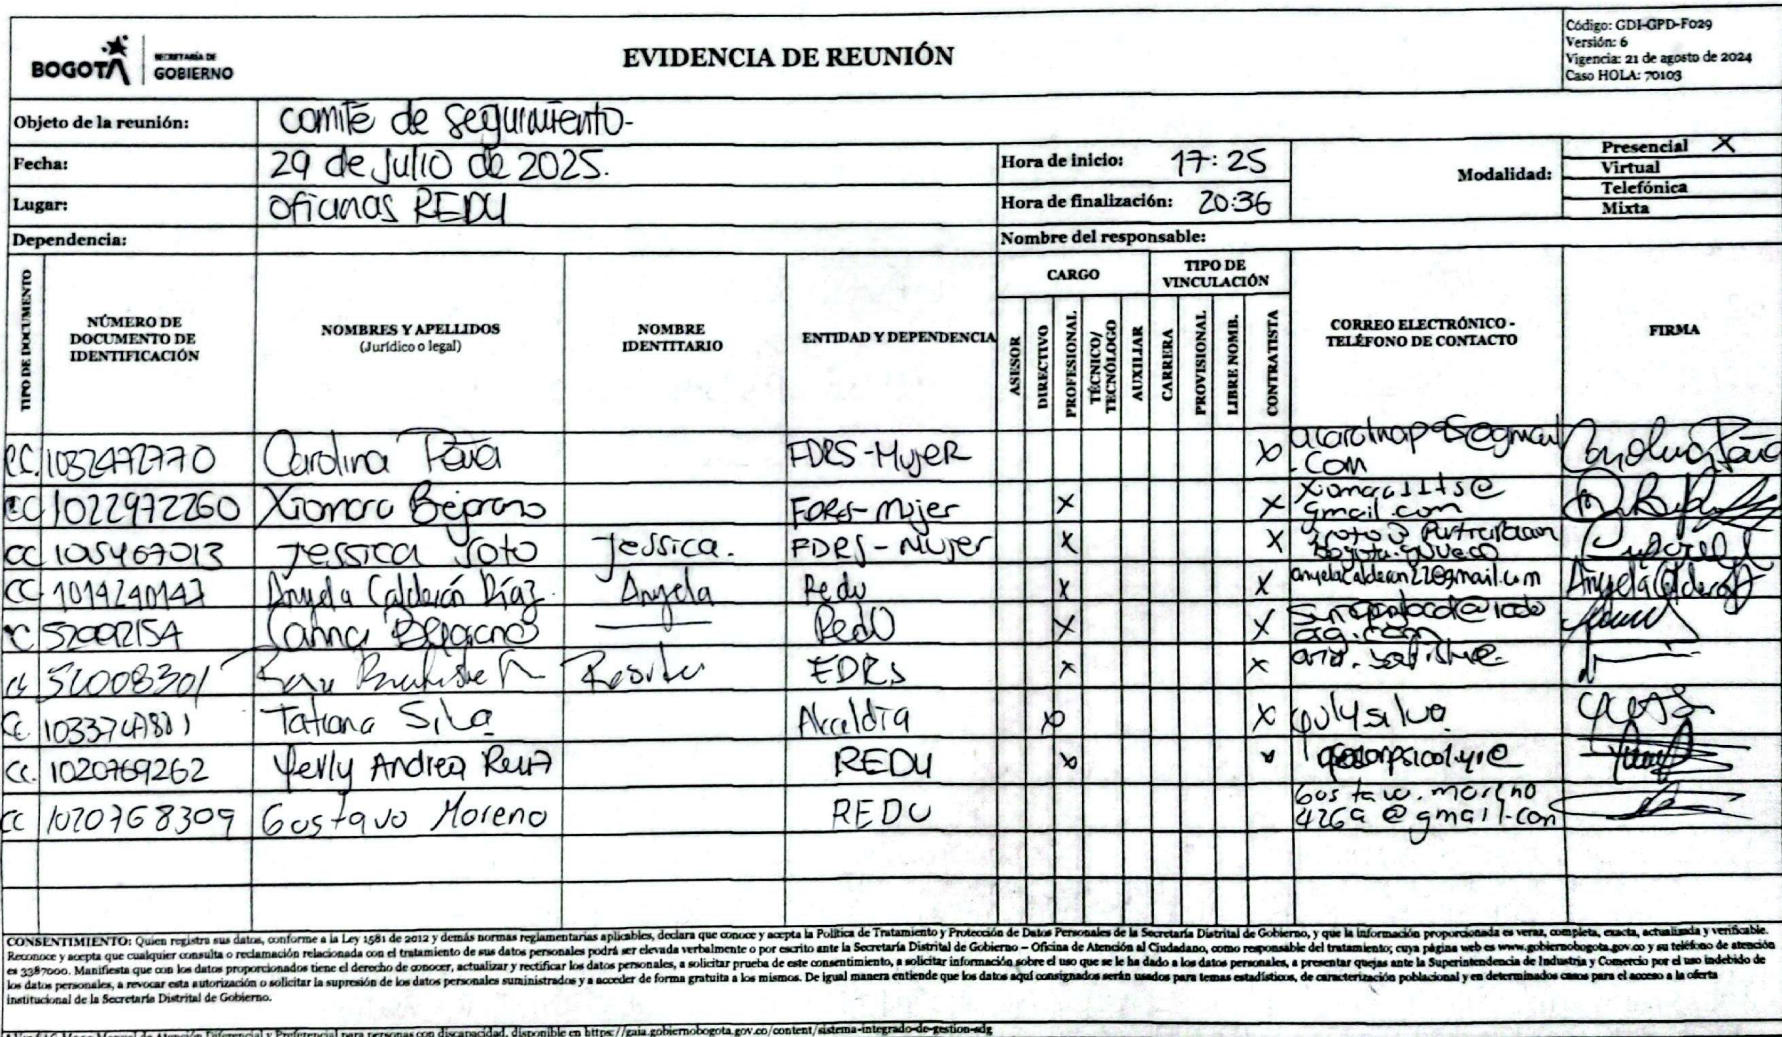 BOGOTÁ
SECRETARÍA DE
GOBIERNO
EVIDENCIA DE REUNIÓN
Código: GDI-GPD-F029
Versión: 6
Vigencia: 21 de agosto de 2024
Caso HOLA: 70103
Objeto de la reunión: comité de seguimiento-
Fecha: 29 de Julio de 2025. Hora de inicio: 17:25
Lugar: oficinas REDU Hora de finalización: 20:36
Modalidad:
Presencial X
Virtual
Telefónica
Mixta
Dependencia: Nombre del responsable:
TIPO DE DOCUMENTO
NÚMERO DE
DOCUMENTO DE
IDENTIFICACIÓN
NOMBRES Y APELLIDOS
(Jurídico o legal)
NOMBRE
IDENTITARIO
ENTIDAD Y DEPENDENCIA
CARGO
ASESOR
DIRECTIVO
PROFESIONAL
TÉCNICO/
TECNÓLOGO
AUXILIAR
TIPO DE
VINCULACIÓN
CARRERA
PROVISIONAL
LIBRE NOMB.
CONTRATISTA
CORREO ELECTRÓNICO -
TELÉFONO DE CONTACTO
FIRMA
CC. 1032472770 Carolina FDRS-Mujer X
.com
CC 1022972260 Xiomara Bejarano FDRS-Mujer X X Xiomara11ts@
gmail.com
CC Jessica Soto Jessica. FDRS-Mujer X X
CC 1014240147 Angela Calderón Díaz. Angela Redu X X angelacalderon22@gmail.com Angela Calderón
Redu X X
FDRS X X
CC Tatiana Silva Alcaldía X X
CC. 1020769262 Yerly Andrea Ruiz REDU X X
CC 1020768309 Gustavo Moreno REDU Gustavo.moreno
426a@gmail.com
CONSENTIMIENTO: Quien registra sus datos, conforme a la Ley 1581 de 2012 y demás normas reglamentarias aplicables, declara que conoce y acepta la Política de Tratamiento y Protección de Datos Personales de la Secretaría Distrital de Gobierno, y que la información proporcionada es veraz, completa, exacta, actualizada y verificable.
Reconoce y acepta que cualquier consulta o reclamación relacionada con el tratamiento de sus datos personales podrá ser elevada verbalmente o por escrito ante la Secretaría Distrital de Gobierno – Oficina de Atención al Ciudadano, como responsable del tratamiento; cuya página web es www.gobiernobogota.gov.co y su teléfono de atención
es 3387000. Manifiesta que con los datos proporcionados tiene el derecho de conocer, actualizar y rectificar los datos personales, a solicitar prueba de este consentimiento, a solicitar información sobre el uso que se le ha dado a los datos personales, a presentar quejas ante la Superintendencia de Industria y Comercio por el uso indebido de
los datos personales, a revocar esta autorización o solicitar la supresión de los datos personales suministrados y a acceder de forma gratuita a los mismos. De igual manera entiende que los datos aquí consignados serán usados para temas estadísticos, de caracterización poblacional y en determinados casos para el acceso a la oferta
institucional de la Secretaría Distrital de Gobierno.
Manual de Atención Diferencial y Preferencial para personas con discapacidad, disponible en https://gaia.gobiernobogota.gov.co/content/sistema-integrado-de-gestion-sdg